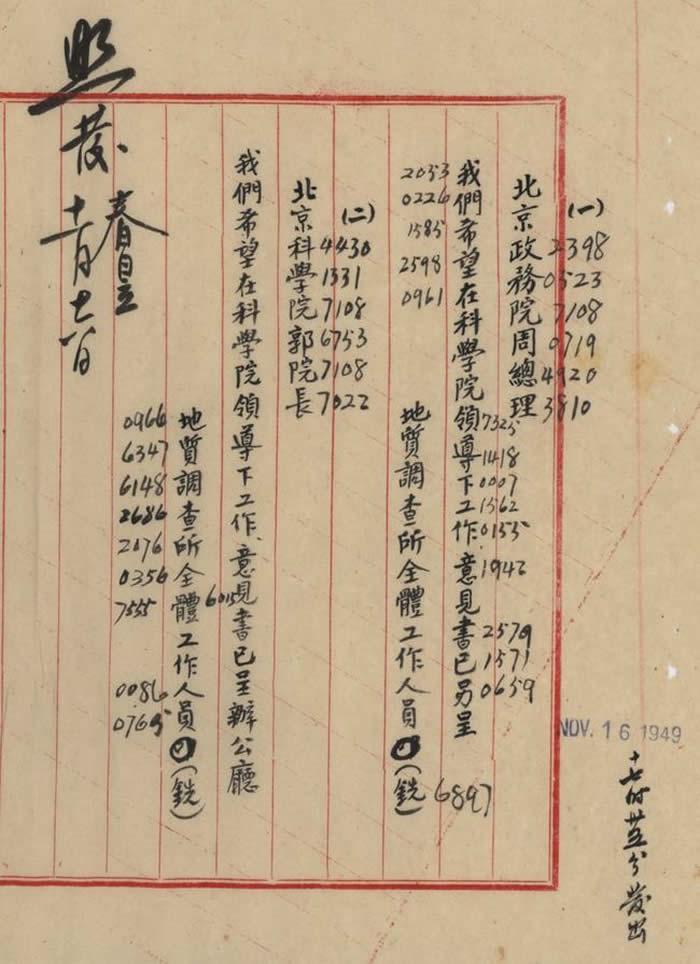 NOV. 16 1949
十七时卅五分發出
(一)
2398
0523
7108
0719
4920
3810
北京政務院周總理
7325
1418
0007
1562
0155
1942
2579
1571
0659
我們希望在科學院領導下工作.意見書已另呈
2053
0226
1585
2598
0961
地質調查所全體工作人員叩(銑)
6897
(二)
4430
1331
7108
6753
7108
7022
北京科學院郭院長
我們希望在科學院領導下工作、意見書已呈辦公廳
6015
地質調查所全體工作人員叩(銑)
0966
6347
6148
2686
2076
0356
7555
0086
0765
照發
春昱
十一月十六日